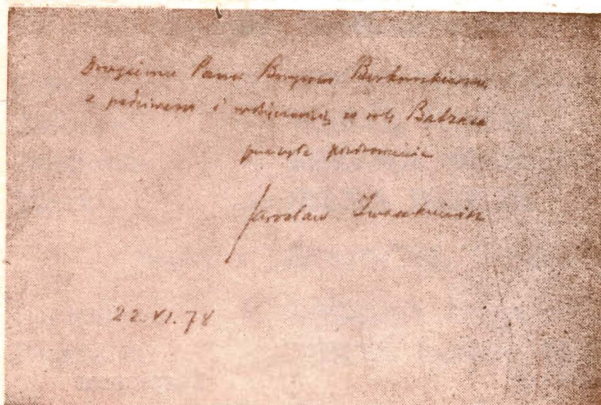 Drogiemu Panu Borysowi Borkowskiemu
z podziwem i wdzięcznością za rolę Balzaka
przesyła pozdrowienia
Jarosław Iwaszkiewicz
22.VI.78